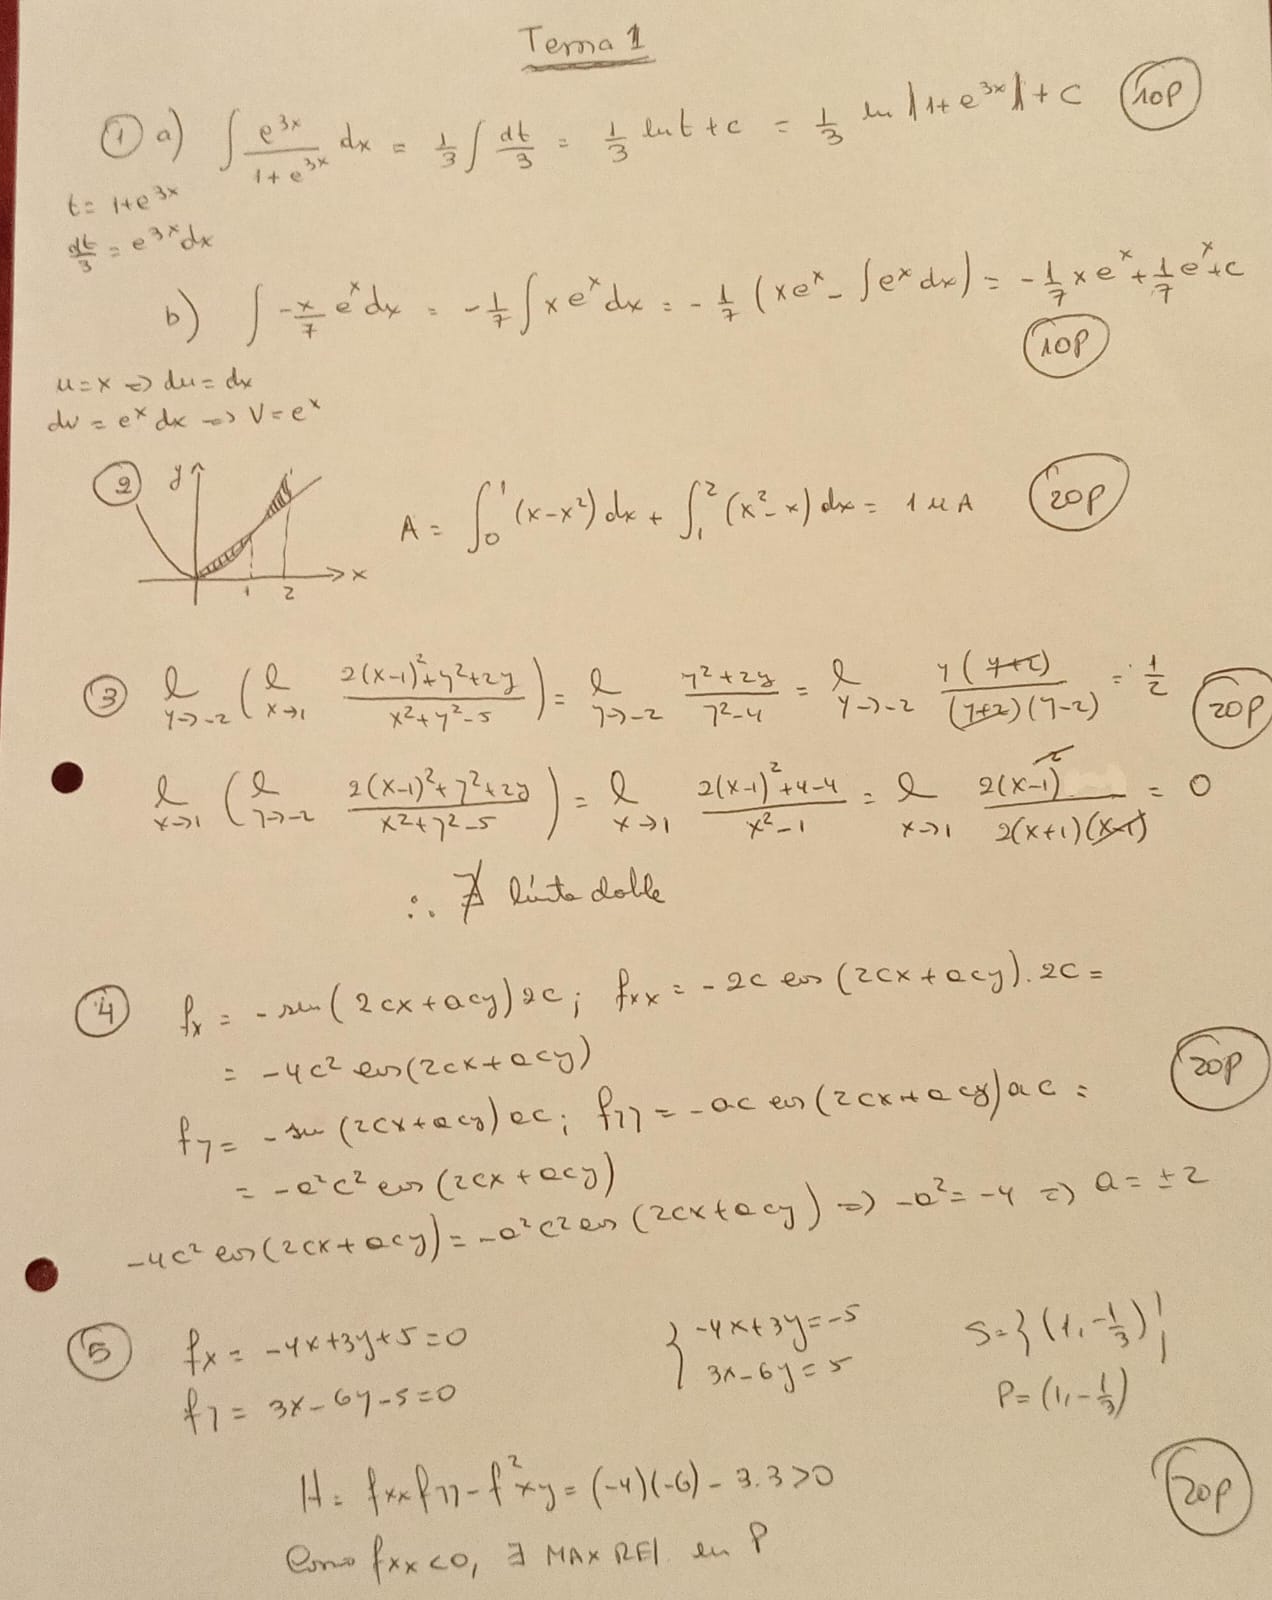 Tema 1
① a) ∫ e^{3x}/(1+e^{3x}) dx = 1/3 ∫ dt/3 = 1/3 ln t + c = 1/3 ln |1+e^{3x}| + C (10P)
t = 1+e^{3x}
dt/3 = e^{3x} dx
b) ∫ -x/7 e^x dx = -1/7 ∫ x e^x dx = -1/7 (xe^x - ∫e^x dx) = -1/7 xe^x + 1/7 e^x + c
(10P)
u = x => du = dx
dv = e^x dx => V = e^x
② y x 1 2 A = ∫_0^1 (x-x²) dx + ∫_1^2 (x²-x) dx = 1 u A (20P)
③ l_{y→-2} ( l_{x→1} (2(x-1)²+y²+2y)/(x²+y²-5) ) = l_{y→-2} (y²+2y)/(y²-4) = l_{y→-2} y(y+2)/((y+2)(y-2)) = 1/2 (20P)
l_{x→1} ( l_{y→-2} (2(x-1)²+y²+2y)/(x²+y²-5) ) = l_{x→1} (2(x-1)²+4-4)/(x²-1) = l_{x→1} 2(x-1)²/(2(x+1)(x-1)) = 0
∴ ∄ límite doble
④ fx = - sen(2cx+acy)2c; fxx = -2c cos(2cx+acy).2c =
= -4c² cos(2cx+acy)
(20P)
fy = - sen(2cx+acy)ac; fyy = -ac cos(2cx+acy)ac =
= -a²c² cos(2cx+acy)
-4c² cos(2cx+acy) = -a²c² cos(2cx+acy) => -a² = -4 => a = ±2
⑤ fx = -4x+3y+5=0 { -4x+3y=-5 S={(1,-1/3)}
fy = 3x-6y-5=0 3x-6y=5 P=(1,-1/3)
H = fxx fyy - f²xy = (-4)(-6) - 3.3 > 0 (20P)
Como fxx<0, ∃ MAX REL en P